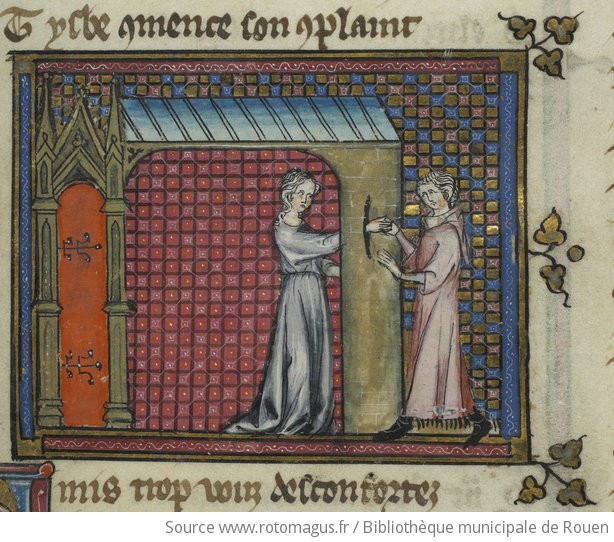 Tysbe ꝯmence son ꝯplaint
mis trop vouz desconfortez
Source www.rotomagus.fr / Bibliothèque municipale de Rouen